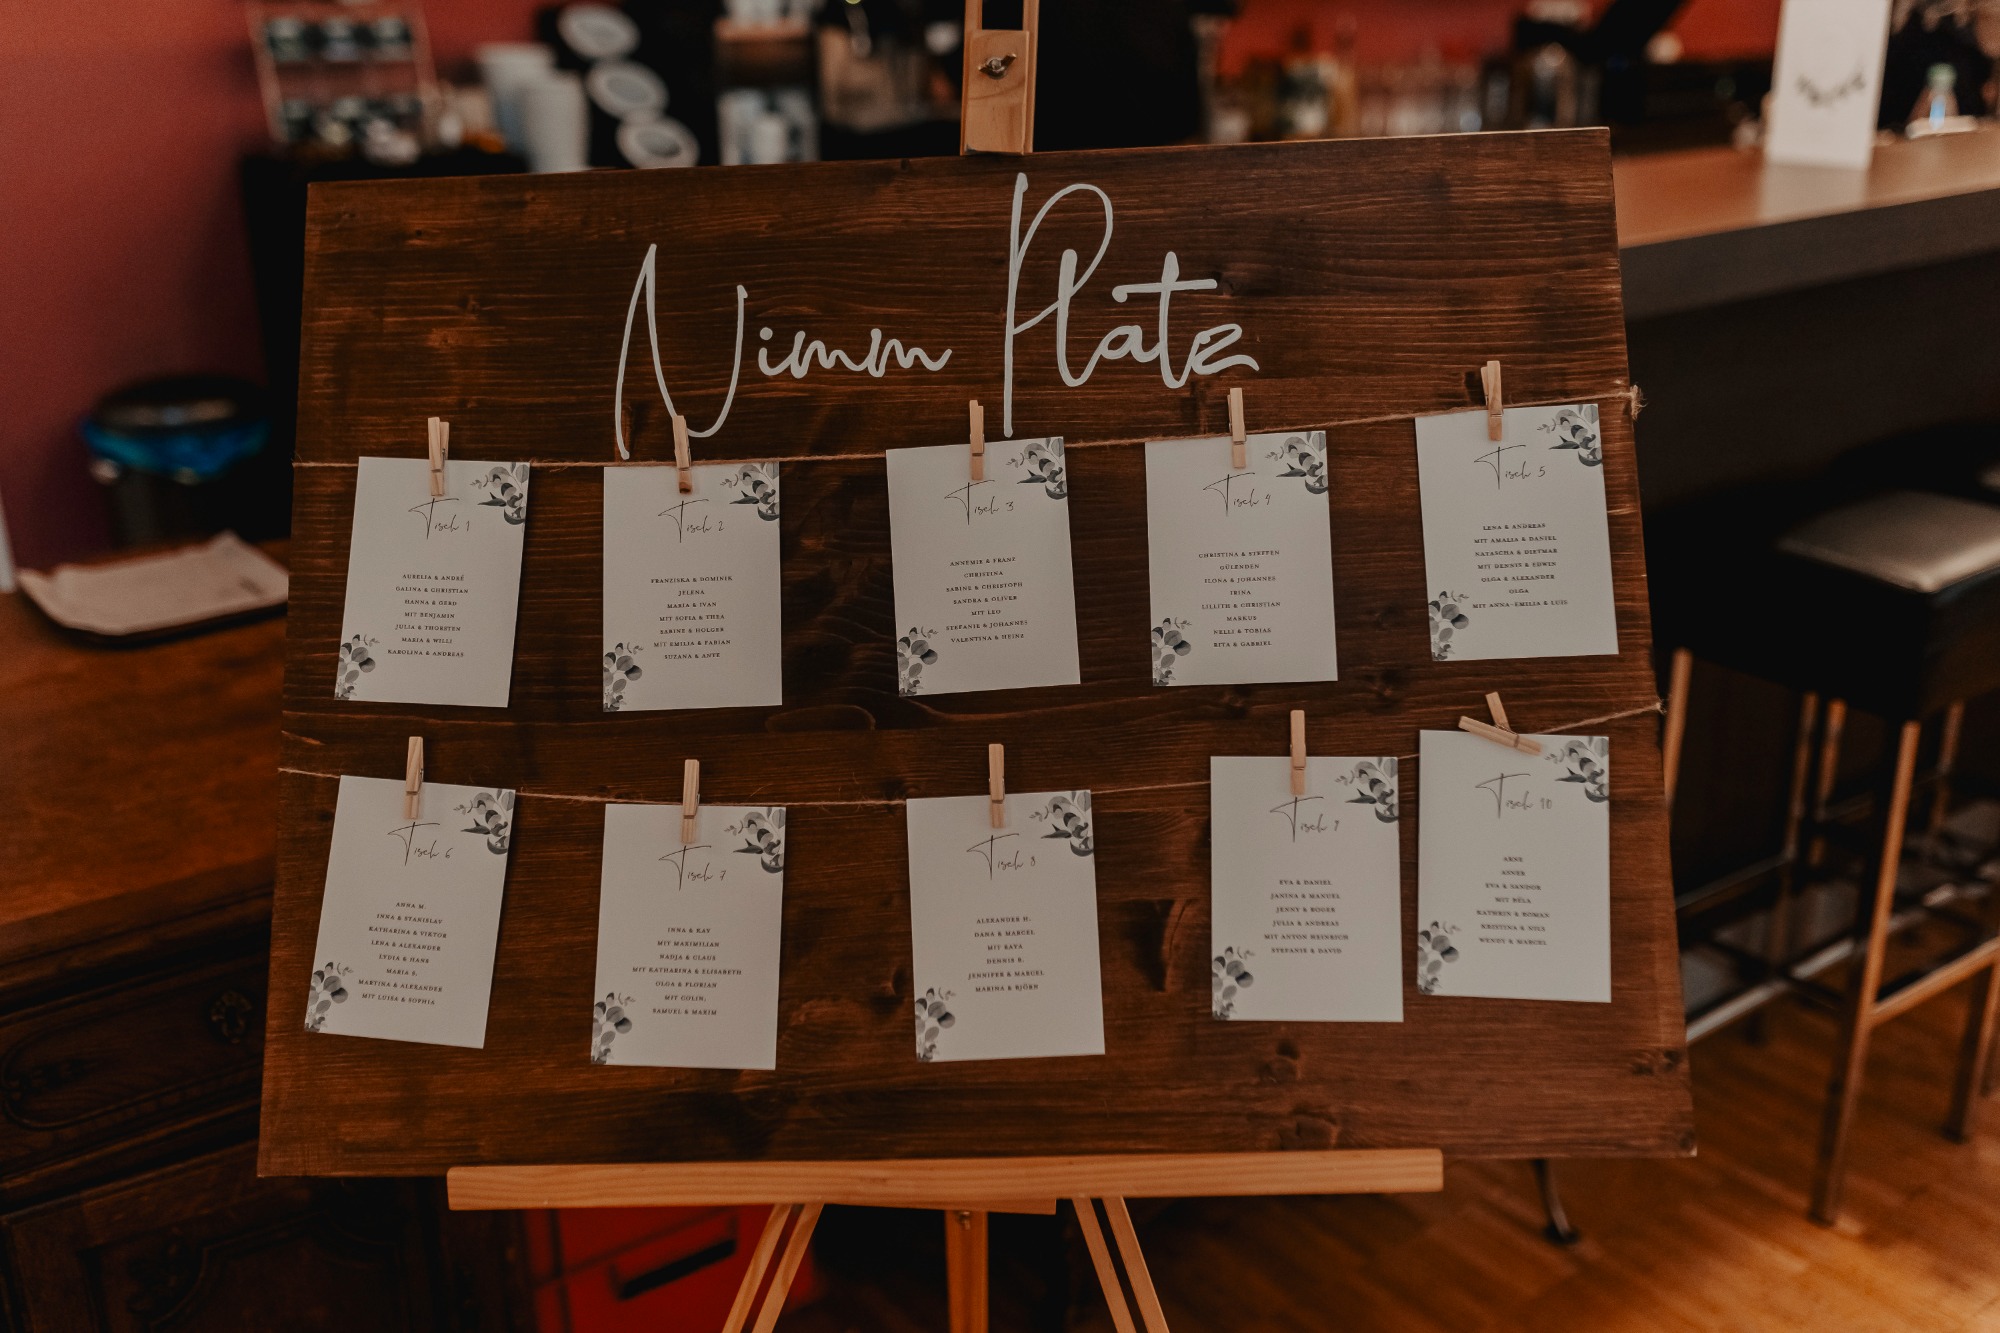 Nimm Platz
Tisch 1
AURELIA & ANDRÉ
GALINA & CHRISTIAN
HANNA & GERD
MIT BENJAMIN
JULIA & THORSTEN
MARIA & WILLI
KAROLINA & ANDREAS
Tisch 2
FRANZISKA & DOMINIK
JELENA
MARIA & IVAN
MIT SOFIA & THEA
SABINE & HOLGER
MIT EMILIA & FABIAN
SUZANA & ANTE
Tisch 3
ANNEMIE & FRANZ
CHRISTINA
SABINE & CHRISTOPH
SANDRA & OLIVER
MIT LEO
STEFANIE & JOHANNES
VALENTINA & HEINZ
Tisch 4
CHRISTINA & STEFFEN
GÜLENDEN
ILONA & JOHANNES
IRINA
LILLITH & CHRISTIAN
MARKUS
NELLI & TOBIAS
RITA & GABRIEL
Tisch 5
LENA & ANDREAS
MIT AMALIA & DANIEL
NATASCHA & DIETMAR
MIT DENNIS & EDWIN
OLGA & ALEXANDER
OLGA
MIT ANNA-EMILIA & LUIS
Tisch 6
ANNA M.
INNA & STANISLAV
KATHARINA & VIKTOR
LENA & ALEXANDER
LYDIA & HANS
MARIA S.
MARTINA & ALEXANDER
MIT LUISA & SOPHIA
Tisch 7
INNA & KAY
MIT MAXIMILIAN
NADJA & CLAUS
MIT KATHARINA & ELISABETH
OLGA & FLORIAN
MIT COLIN,
SAMUEL & MAXIM
Tisch 8
ALEXANDER H.
DANA & MARCEL
MIT KAYA
DENNIS R.
JENNIFER & MARCEL
MARINA & BJÖRN
Tisch 9
EVA & DANIEL
JANINA & MANUEL
JENNY & ROGER
JULIA & ANDREAS
MIT ANTON HEINRICH
STEFANIE & DAVID
Tisch 10
ARNE
ASNER
EVA & SANDOR
MIT BÉLA
KATHRIN & ROMAN
KRISTINA & NILS
WENDY & MARCEL